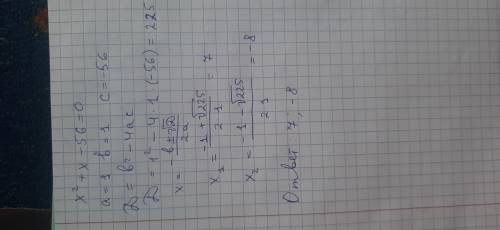 x² + x - 56 = 0
a = 1 b = 1 c = -56
D = b² - 4ac
D = 1² - 4 1 (-56) = 225
x = -b±√D / 2a
x₁ = -1 + √225 / 2 1 = 7
x₂ = -1 - √225 / 2 1 = -8
Ответ 7, -8